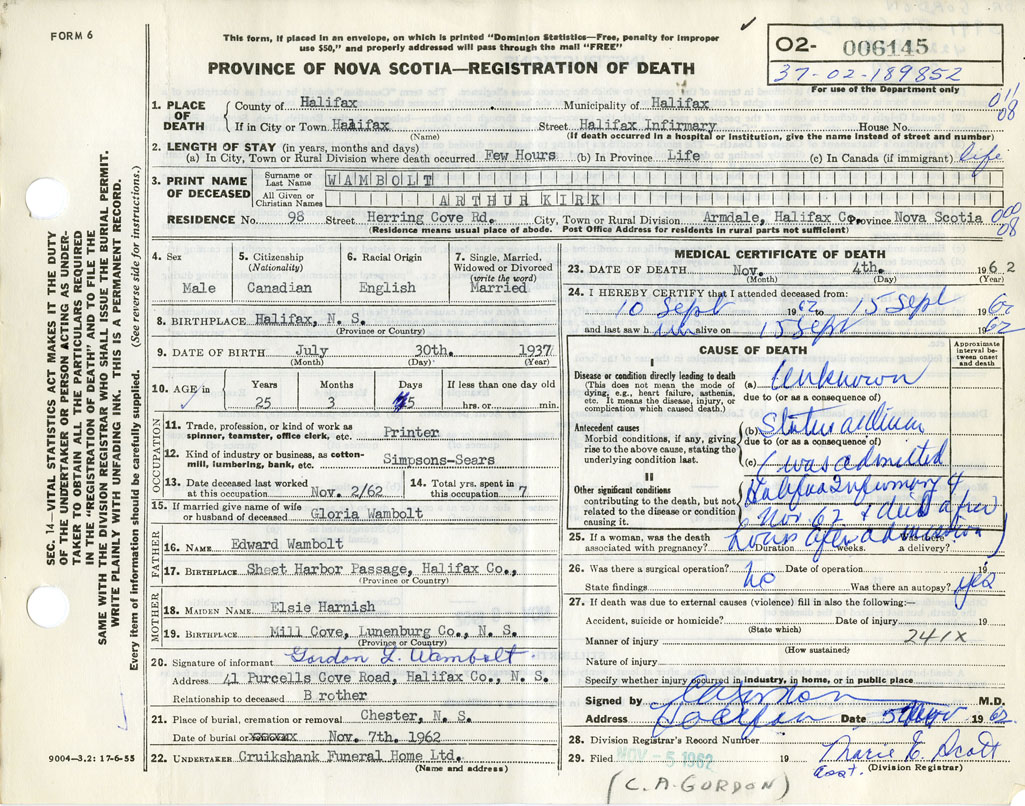 FORM 6
This form, if placed in an envelope, on which is printed "Dominion Statistics—Free, penalty for improper
use $50," and properly addressed will pass through the mail "FREE"
PROVINCE OF NOVA SCOTIA—REGISTRATION OF DEATH
02- 006145
37-02-189852
For use of the Department only
1. PLACE OF DEATH
County of Halifax Municipality of Halifax
011
08
If in City or Town Halifax Street Halifax Infirmary House No.
(Name) (If death occurred in a hospital or institution, give the name instead of street and number)
2. LENGTH OF STAY (in years, months and days)
(a) In City, Town or Rural Division where death occurred Few Hours (b) In Province Life (c) In Canada (if immigrant) life
3. PRINT NAME OF DECEASED
Surname or Last Name WAMBOLT
All Given or Christian Names ARTHUR KIRK
RESIDENCE No. 98 Street Herring Cove Rd. City, Town or Rural Division Armdale, Halifax Co. Province Nova Scotia
08
(Residence means usual place of abode. Post Office Address for residents in rural parts not sufficient)
4. Sex
Male
5. Citizenship
(Nationality)
Canadian
6. Racial Origin
English
7. Single, Married,
Widowed or Divorced
(write the word)
Married
8. BIRTHPLACE Halifax, N. S.
(Province or Country)
9. DATE OF BIRTH July 30th. 1937
(Month) (Day) (Year)
10. AGE in
Years Months Days If less than one day old
25 3 5 hrs. or min.
OCCUPATION
11. Trade, profession, or kind of work as
spinner, teamster, office clerk, etc. Printer
12. Kind of industry or business, as cotton-
mill, lumbering, bank, etc. Simpsons-Sears
13. Date deceased last worked
at this occupation Nov. 2/62
14. Total yrs. spent in
this occupation 7
15. If married give name of wife
or husband of deceased Gloria Wambolt
FATHER
16. NAME Edward Wambolt
17. BIRTHPLACE Sheet Harbor Passage, Halifax Co.,
(Province or Country)
MOTHER
18. MAIDEN NAME Elsie Harnish
19. BIRTHPLACE Mill Cove, Lunenburg Co., N. S.
(Province or Country)
20. Signature of informant Gordon L. Wambolt
Address 41 Purcells Cove Road, Halifax Co., N. S.
Relationship to deceased Brother
21. Place of burial, cremation or removal Chester, N. S.
Date of burial or Nov. 7th. 1962
22. UNDERTAKER Cruikshank Funeral Home Ltd.
(Name and address)
MEDICAL CERTIFICATE OF DEATH
23. DATE OF DEATH Nov. 4th. 1962
(Month) (Day) (Year)
24. I HEREBY CERTIFY that I attended deceased from:
10 Sept 1962 to 15 Sept 1962
and last saw him alive on 15 Sept 1962
CAUSE OF DEATH
Approximate interval between onset and death
I
Disease or condition directly leading to death
(This does not mean the mode of
dying, e.g., heart failure, asthenia,
etc. It means the disease, injury, or
complication which caused death.)
(a) Unknown
due to (or as a consequence of)
Antecedent causes
Morbid conditions, if any, giving
rise to the above cause, stating the
underlying condition last.
(b) Status
due to (or as a consequence of)
(c) (was admitted
II
Other significant conditions
contributing to the death, but not
related to the disease or condition
causing it.
Halifax Infirmary 4
Nov 62 & died a few
hours after admission)
25. If a woman, was the death
associated with pregnancy? Duration weeks. a delivery?
26. Was there a surgical operation? No Date of operation 19
State findings Was there an autopsy? yes
27. If death was due to external causes (violence) fill in also the following:—
Accident, suicide or homicide? Date of injury 19
(State which)
Manner of injury 241X
(How sustained)
Nature of injury
Specify whether injury occurred in industry, in home, or in public place
Signed by C A Gordon M.D.
Address Halifax Date 5 Nov 1962
28. Division Registrar's Record Number
29. Filed NOV - 5 1962 19 Marie E. Scott
Asst. (Division Registrar)
(C. A. GORDON)
SEC. 14—VITAL STATISTICS ACT MAKES IT THE DUTY
OF THE UNDERTAKER OR PERSON ACTING AS UNDER-
TAKER TO OBTAIN ALL THE PARTICULARS REQUIRED
IN THE "REGISTRATION OF DEATH" AND TO FILE THE
SAME WITH THE DIVISION REGISTRAR WHO SHALL ISSUE THE BURIAL PERMIT.
WRITE PLAINLY WITH UNFADING INK. THIS IS A PERMANENT RECORD.
Every item of information should be carefully supplied. (See reverse side for instructions.)
9004—3.2: 17-6-55